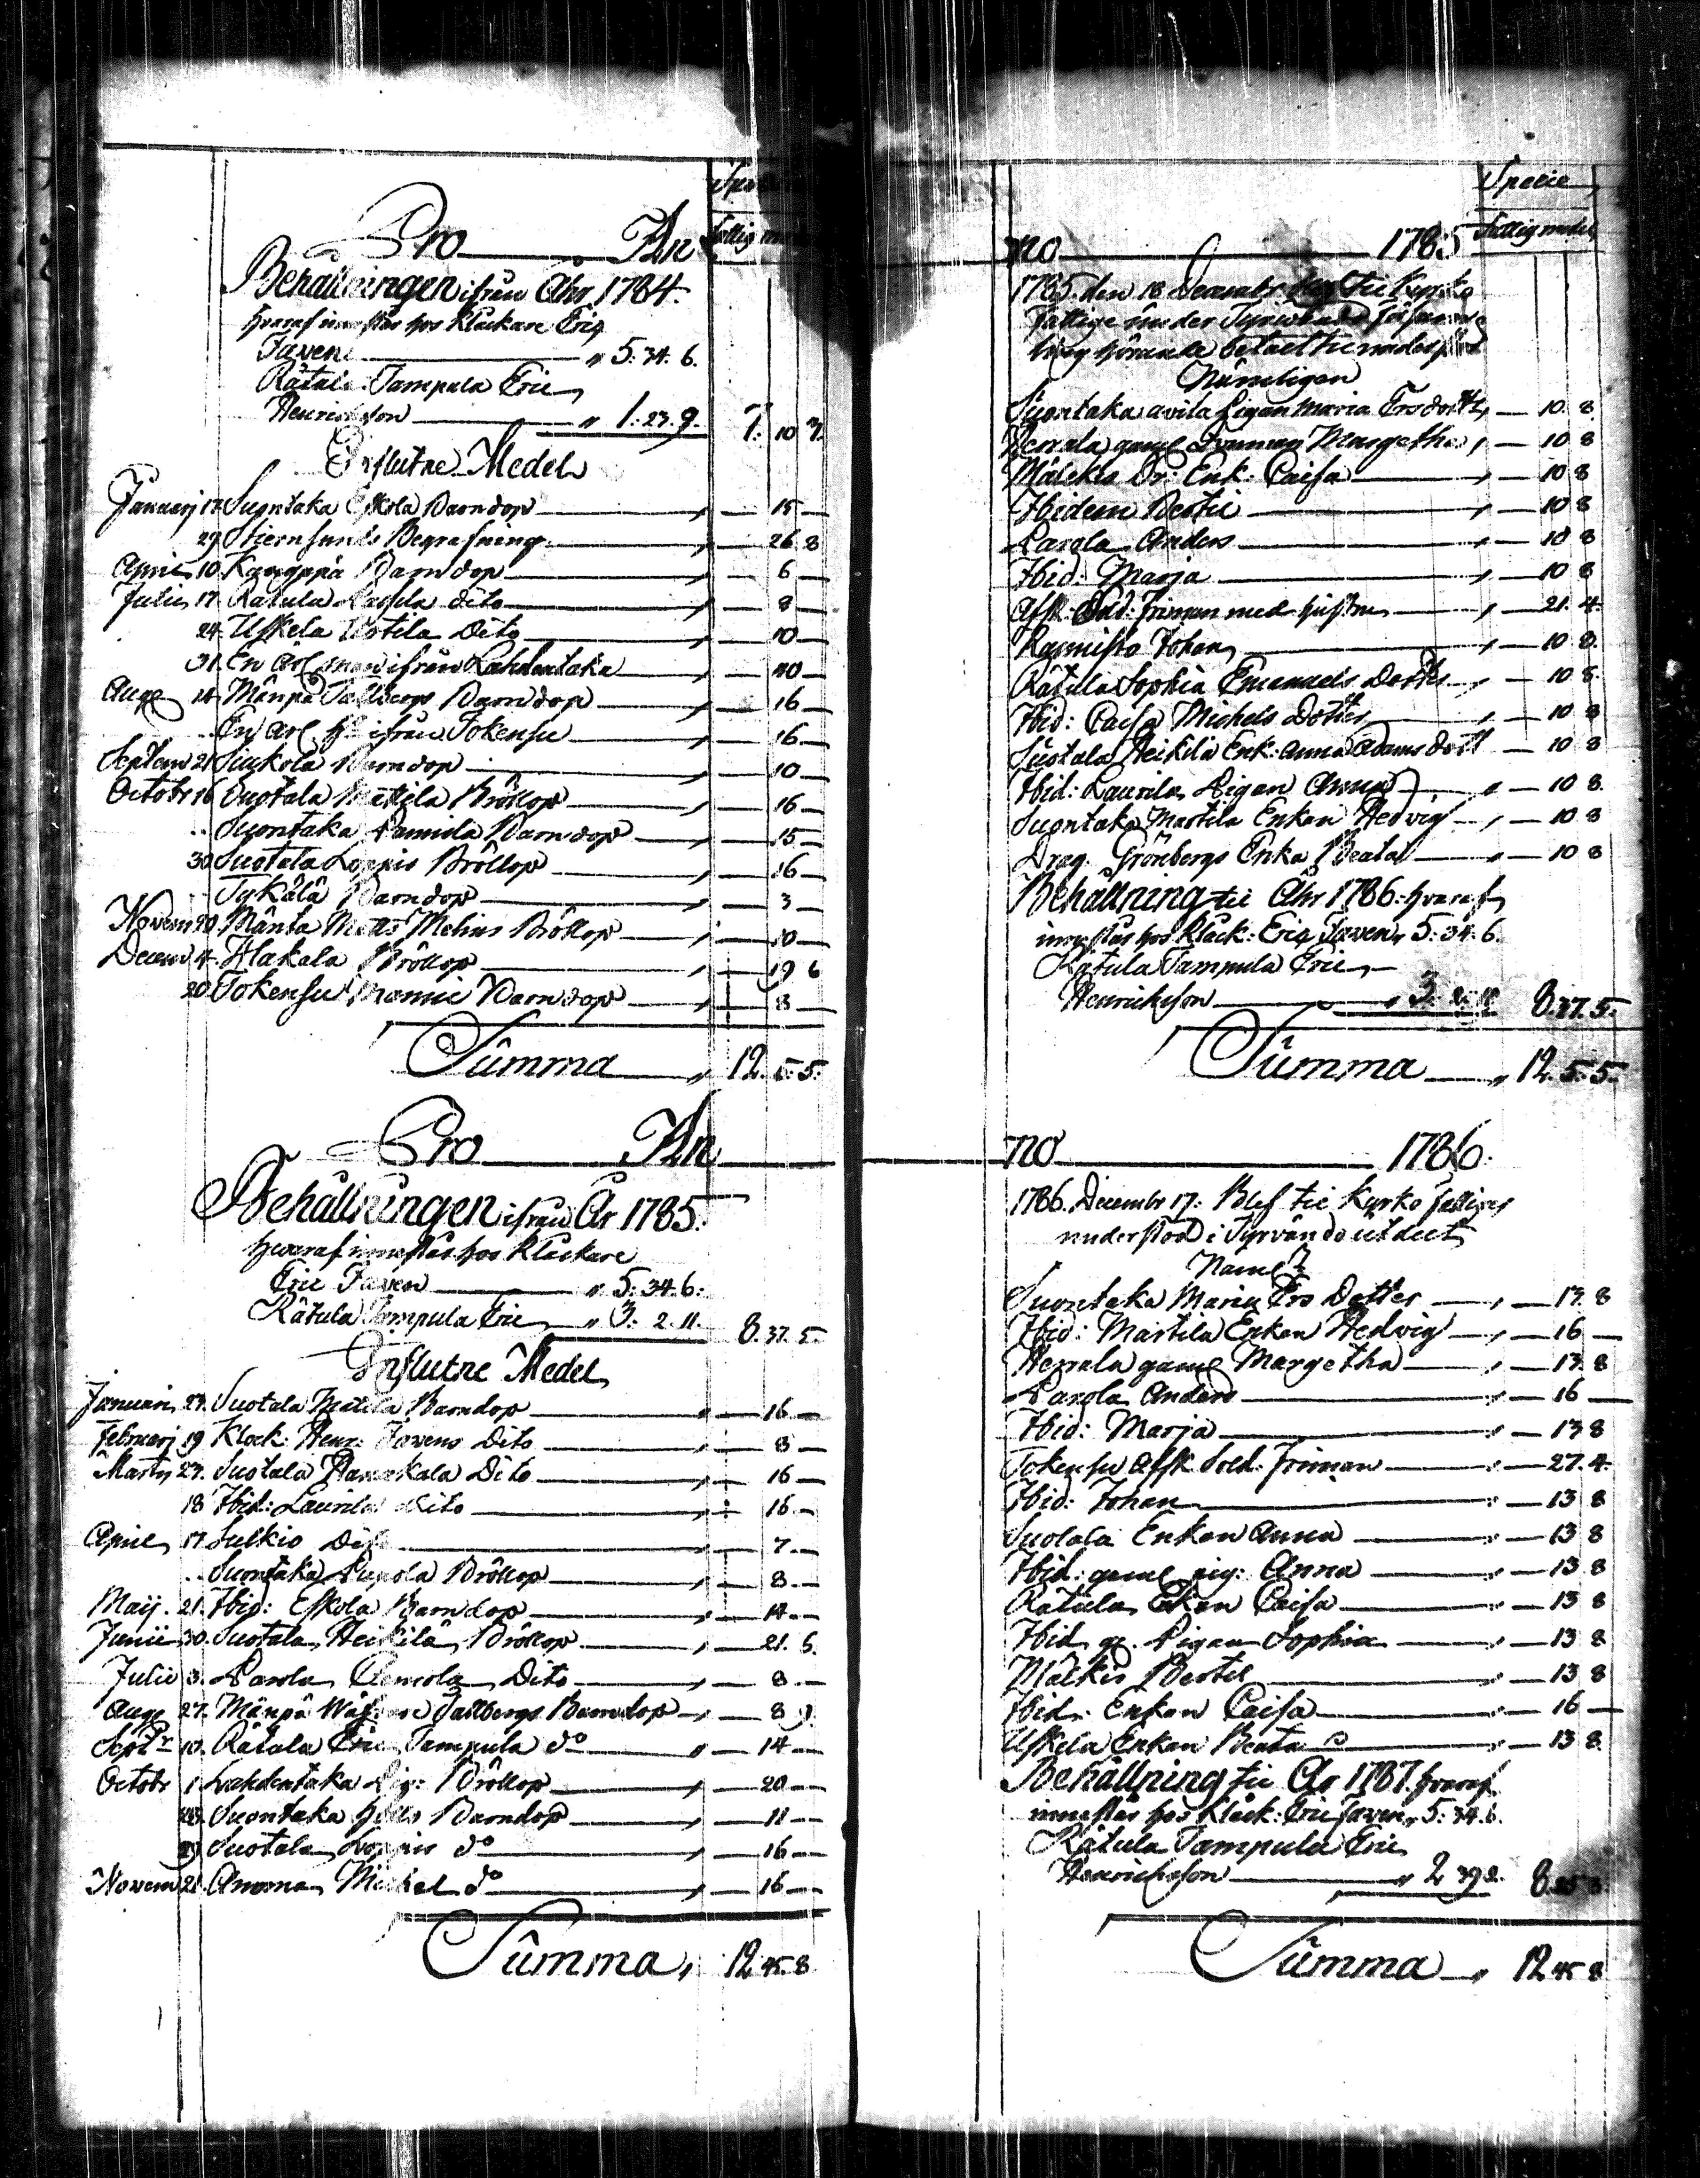 Specie
Fattig medel
Pro An
Behållningen ifrån Åhr 1784.
hvaraf innestår hos Klåckare Eric
Faven " 5. 34. 6.
Rätula Tampula Eric
Henricsson " 1. 23. 9. 7. 10 7.
Influtne Medel
Januarj 17 Suontaka Eskola Barndop — 15 —
29 Stiernsunds Begrafning — 26 8
April 10 Kangspä Barndop — 6 —
Julii 17 Rätula dito — 8 —
24. Uskela Uotila Dito — 10 —
31. En Ärl. man ifrån Lahdentaka — 40 —
Aug. 14 Mänpä Tallbergs Barndop — 16 —
En ärl. ifrån Tokensu — 16 —
Septem 21 Barndop — 10 —
Octobr 16 Suotala Mattila Bröllop — 16 —
.. Suontaka Barndop — 15 —
30 Suotala Loppis Bröllop — 16 —
.. Tykölä Barndop — 3 —
Novem 20 Mänta Matts Bröllop — 10 —
Decem 4. Hakala Bröllop — 19 6
20 Tokensu Barndop — 8 —
Summa " 12. 5. 5.
Pro An
Behållningen ifrån År 1785.
hvaraf innestår hos Klåckare
Eric Faven " 5. 34. 6.
Rätula Tampula Eric " 3. 2. 11. 8. 37. 5.
Influtne Medel
Januarii 23. Suotala Mattila Barndop — 16 —
Februarj 19 Klock. Henr. Favens Dito — 8 —
Martij 27. Suotala Dito — 16 —
18 Ibid: Laurila dito — 16 —
April 17 Sulkio Dito — 7 —
.. Suontaka Bröllop — 8 —
Maij. 21. Ibid: Eskola Barndop — 14 —
Junii 30. Suotala Heikilä Bröllop — 21. 6.
Julii 3. Parola Dito — 8 —
Aug. 27. Mänpä Tallbergs Barndop — 8 9
Septr 10. Rätula Eric Tampula do — 14 —
Octobr 1 Lahdentaka Bröllop — 20 —
Suontaka Barndop — 11 —
29 Suotala Loppis do — 16 —
Novem 21 Michel do — 16 —
Summa " 12 45. 8
Specie
Fattig medel
no 1785
1785. den 18 Decembr til Kyrko
Fattige under
hörande betalt til understöd
Nämligen
Suontaka Pigan Maria Ersdotter — 10 8
Herrala gaml. Margetha — 10 8
Mälckis Enk: Caisa — 10 8
Ibidem Bertil — 10 8
Parola Anders — 10 8
Ibid: Marja — 10 8
Afsk: Sold: Friman med hustru — 21. 4.
Johan — 10 8
Rätula Sophia Emanuels Dotter — 10 8
Ibid: Caisa Michels Dotter — 10 8
Suotala Heikilä Enk: Anna Adams dott — 10 8
Ibid: Laurila Pigan Anna — 10 8
Suontaka Martila Enkan Hedvig — 10 8
Drag. Grönbergs Enka Beata — 10 8
Behållning til Åhr 1786: hvaraf
innestår hos Kläck: Eric Faven " 5. 34. 6.
Rätula Tampula Eric
Henricsson " 3. 2. 11. 8. 37. 5.
Summa " 12. 5. 5.
no 1786.
1786. Decembr 17: Blef til Kyrko fattiges
understöd i Tyrvändö utdelt
Naml.
Suontaka Maria Ers Dotter — 13. 8
Ibid: Martila Enkan Hedvig — 16 —
Herrala gaml. Margetha — 13. 8
Parola Anders — 16 —
Ibid: Marja — 13 8
Tokensu Afsk. Sold. Friman — 27. 4.
Ibid: Johan — 13 8
Suotala Enkan Anna — 13 8
Ibid: gaml. pig: Anna — 13 8
Rätula Enkan Caisa — 13 8
Ibid. g. Pigan Sophia — 13 8
Mälkis Bertil — 13 8
Ibid. Enkan Caisa — 16 —
Uskela Enkan Beata — 13 8
Behållning til År 1787. hvaraf
innestår hos Klåck: Eric Faven " 5. 34. 6.
Rätula Tampula Eric
Henricsson " 2 39 2. 8.
Summa " 12 45 8